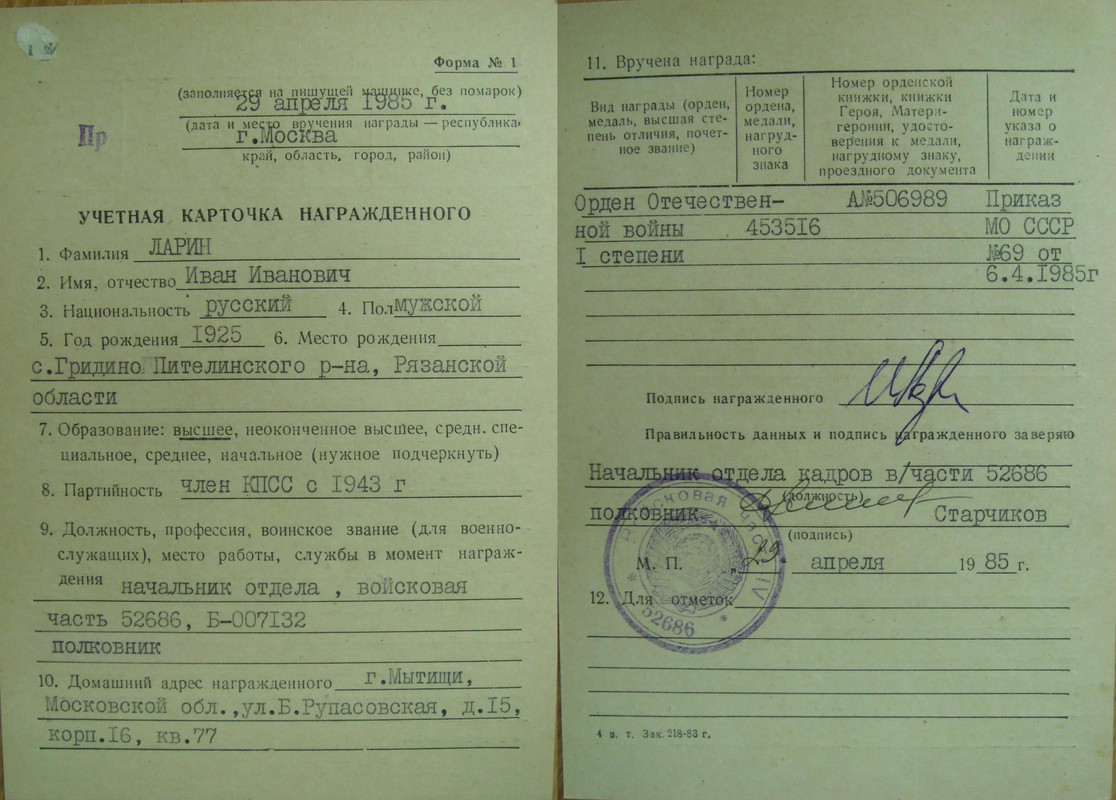 Форма № 1
(заполняется на пишущей машинке, без помарок)
29 апреля 1985 г.
(дата и место вручения награды — республика,
г.Москва
край, область, город, район)
Пр
УЧЕТНАЯ КАРТОЧКА НАГРАЖДЕННОГО
1. Фамилия ЛАРИН
2. Имя, отчество Иван Иванович
3. Национальность русский 4. Пол мужской
5. Год рождения 1925 6. Место рождения
с.Гридино Пителинского р-на, Рязанской
области
7. Образование: высшее, неоконченное высшее, средн. спе-
циальное, среднее, начальное (нужное подчеркнуть)
8. Партийность член КПСС с 1943 г
9. Должность, профессия, воинское звание (для военно-
служащих), место работы, службы в момент награж-
дения начальник отдела , войсковая
часть 52686, Б-007132
полковник
10. Домашний адрес награжденного г.Мытищи,
Московской обл.,ул.Б.Рупасовская, д.15,
корп.16, кв.77
11. Вручена награда:
Вид награды (орден,
медаль, высшая сте-
пень отличия, почет-
ное звание)
Номер
ордена,
медали,
нагруд-
ного
знака
Номер орденской
книжки, книжки
Героя, Матери-
героини, удосто-
верения к медали,
нагрудному знаку,
проездного документа
Дата и
номер
указа о
награж-
дении
Орден Отечествен- А№506989 Приказ
ной войны 453516 МО СССР
I степени №69 от
6.4.1985г
Подпись награжденного
Правильность данных и подпись награжденного заверяю
Начальник отдела кадров в/части 52686
(должность)
полковник Старчиков
(подпись)
М. П. „29" апреля 1985 г.
12. Для отметок
52686
4 в. т. Зак. 218-83 г.